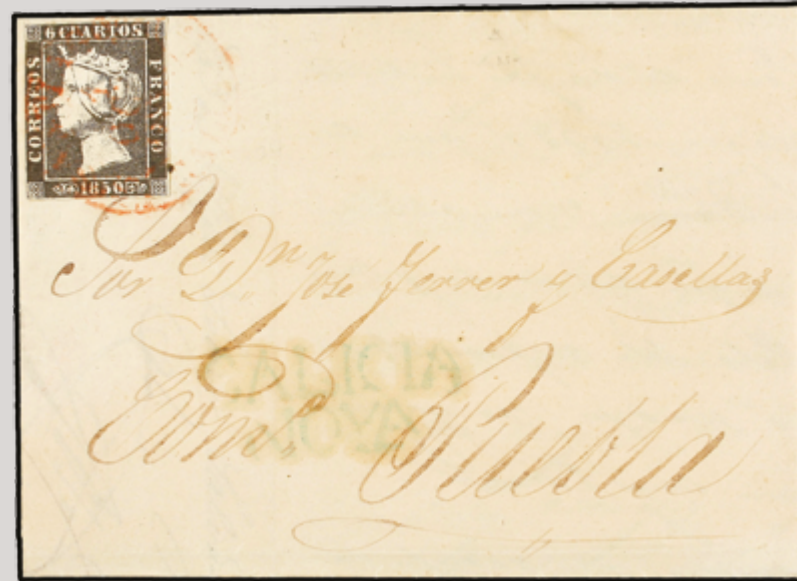 6 CUARTOS
CORREOS
FRANCO
1850
Sor D.n Jose Ferrer y Casellas
Puebla